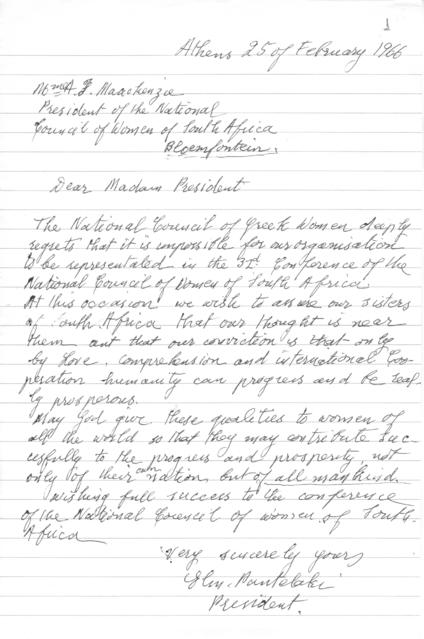 1
Athens 25 of February 1966
Mme A. F. Maackenzie
President of the National
Council of Women of South Africa
Bloemfontein.
Dear Madam President
The National Council of Greek Women deeply
regrets that it is impossible for our organisation
to be representaled in the 31st Conference of the
National Council of Women of South Africa
At this occasion we wish to assure our sisters
of South Africa that our thought is near
them ant that our conviction is that only
by love. Comprehension and international Coo-
peration humanity can progress and be real-
ly prosperous.
May God give these qualities to women of
all the world so that they may contribute suc-
cesfully to the progress and prosperity, not
only of their own nation but of all mankind.
Wishing full success to the conference
of the National Council of women of South-
Africa
Very sincerely yours
Pantelaki
President.